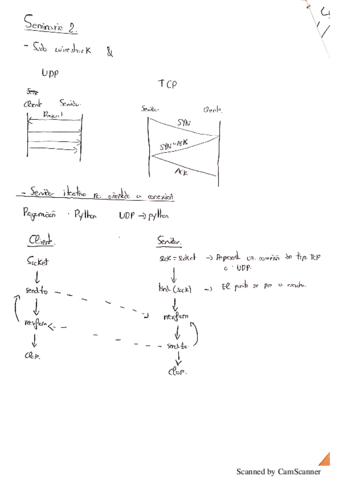 Seminario 2.
- Solo wireshark &
UDP
TCP
Client Servidor
Servidor Cliente
Request
SYN
SYN-ACK
ACK
- Servidor iterativo no orientado a conexión
Programación Python UDP → python
Client Servidor
Socket
sock = socket → conexión de tipo TCP o UDP
sendto
bind (sock) → El puerto se pon a
recvfrom
recvfrom
sendto
Close
Close
Scanned by CamScanner